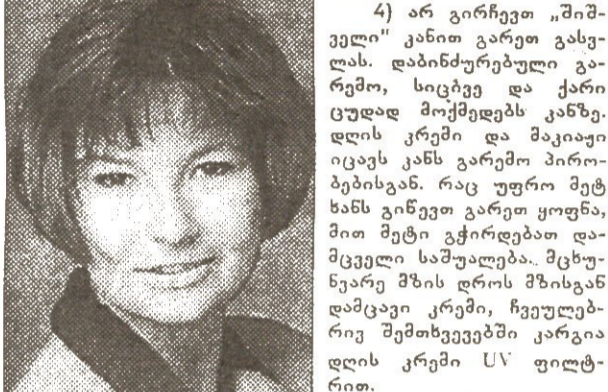 4) არ გირჩევთ „შიშ-
ველი" კანით გარეთ გასვ-
ლას. დაბინძურებული გა-
რემო, სიცხვე და ქარი
ცუდად მოქმედებს კანზე.
დღის კრემი და მაკიაჟი
იცავს კანს გარემო პირო-
ბებისგან. რაც უფრო მეტ
ხანს გიწევთ გარეთ ყოფნა,
მით მეტი გჭირდებათ და-
მცველი საშუალება. მცხუ-
ნვარე მზის დროს მზისგან
დამცავი კრემი, ჩვეულებ-
რივ შემთხვევებში კარგია
დღის კრემი UV ფილტ-
რით.